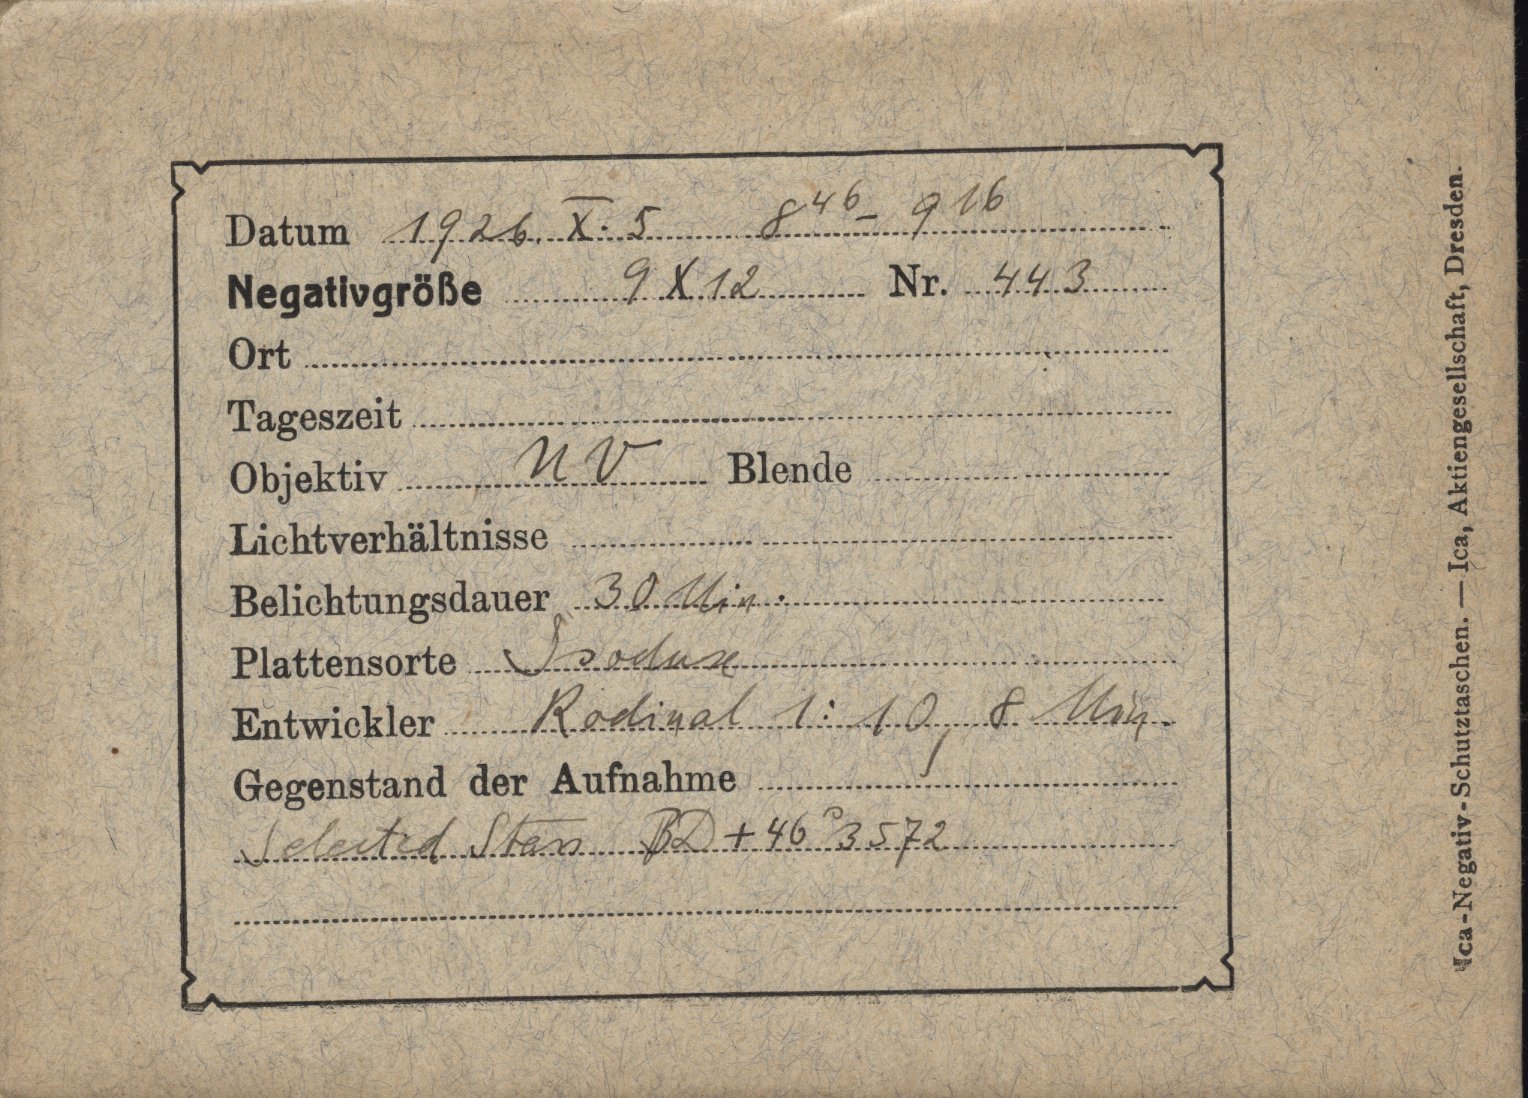 Datum 1926. X. 5 8 46 - 9 16
Negativgröße 9 X 12 Nr. 443
Ort
Tageszeit
Objektiv UV Blende
Lichtverhältnisse
Belichtungsdauer 30 Min.
Plattensorte Isodux
Entwickler Rodinal 1:10, 8 Min.
Gegenstand der Aufnahme
Selected Stars BD +46° 3572
Ica-Negativ-Schutztaschen. — Ica, Aktiengesellschaft, Dresden.